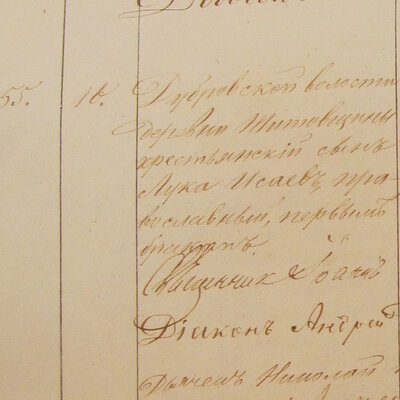 55. 14. Дубровской волости
деревни Титовщины
крестьянскій сынъ
Лука Исаевъ, пра-
вославный, первымъ
бракомъ
Священникъ Іоаннъ
Діаконъ Андрей
Дьячекъ Николай